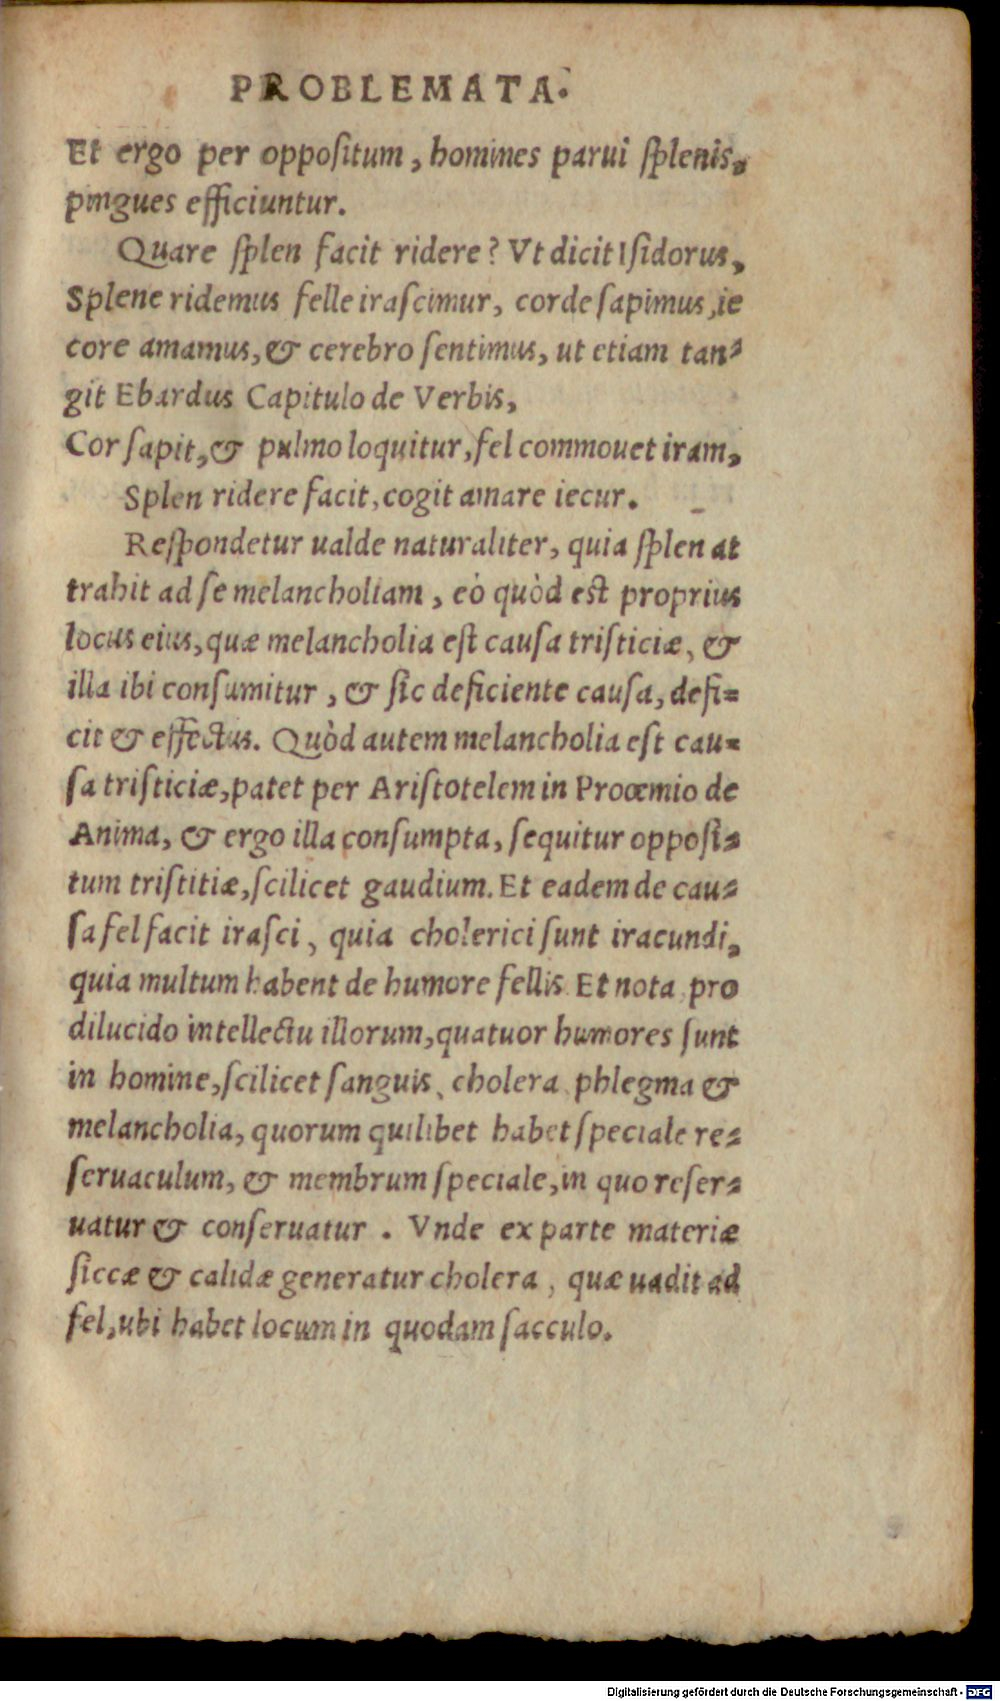 PROBLEMATA.
Et ergo per oppoſitum, homines parui ſplenis,
pingues efficiuntur.
Quare ſplen facit ridere? Vt dicit Iſidorus,
Splene ridemus felle iraſcimur, corde ſapimus, ie
core amamus, & cerebro ſentimus, ut etiam tan-
git Ebardus Capitulo de Verbis,
Cor ſapit, & pulmo loquitur, fel commouet iram,
Splen ridere facit, cogit amare iecur.
Reſpondetur ualde naturaliter, quia ſplen at
trahit ad ſe melancholiam, eò quòd eſt proprius
locus eius, quæ melancholia eſt cauſa triſticiæ, &
illa ibi conſumitur, & ſic deficiente cauſa, defi=
cit & effectus. Quòd autem melancholia eſt cau=
ſa triſticiæ, patet per Ariſtotelem in Proœmio de
Anima, & ergo illa conſumpta, ſequitur oppoſi=
tum triſtitiæ, ſcilicet gaudium. Et eadem de cau=
ſa fel facit iraſci, quia cholerici ſunt iracundi,
quia multum habent de humore fellis. Et nota pro
dilucido intellectu illorum, quatuor humores ſunt
in homine, ſcilicet ſanguis, cholera phlegma &
melancholia, quorum quilibet habet ſpeciale re=
ſeruaculum, & membrum ſpeciale, in quo reſer=
uatur & conſeruatur. Vnde ex parte materiæ
ſiccæ & calidæ generatur cholera, quæ uadit ad
fel, ubi habet locum in quodam ſacculo.
Digitalisierung gefördert durch die Deutsche Forschungsgemeinschaft - DFG